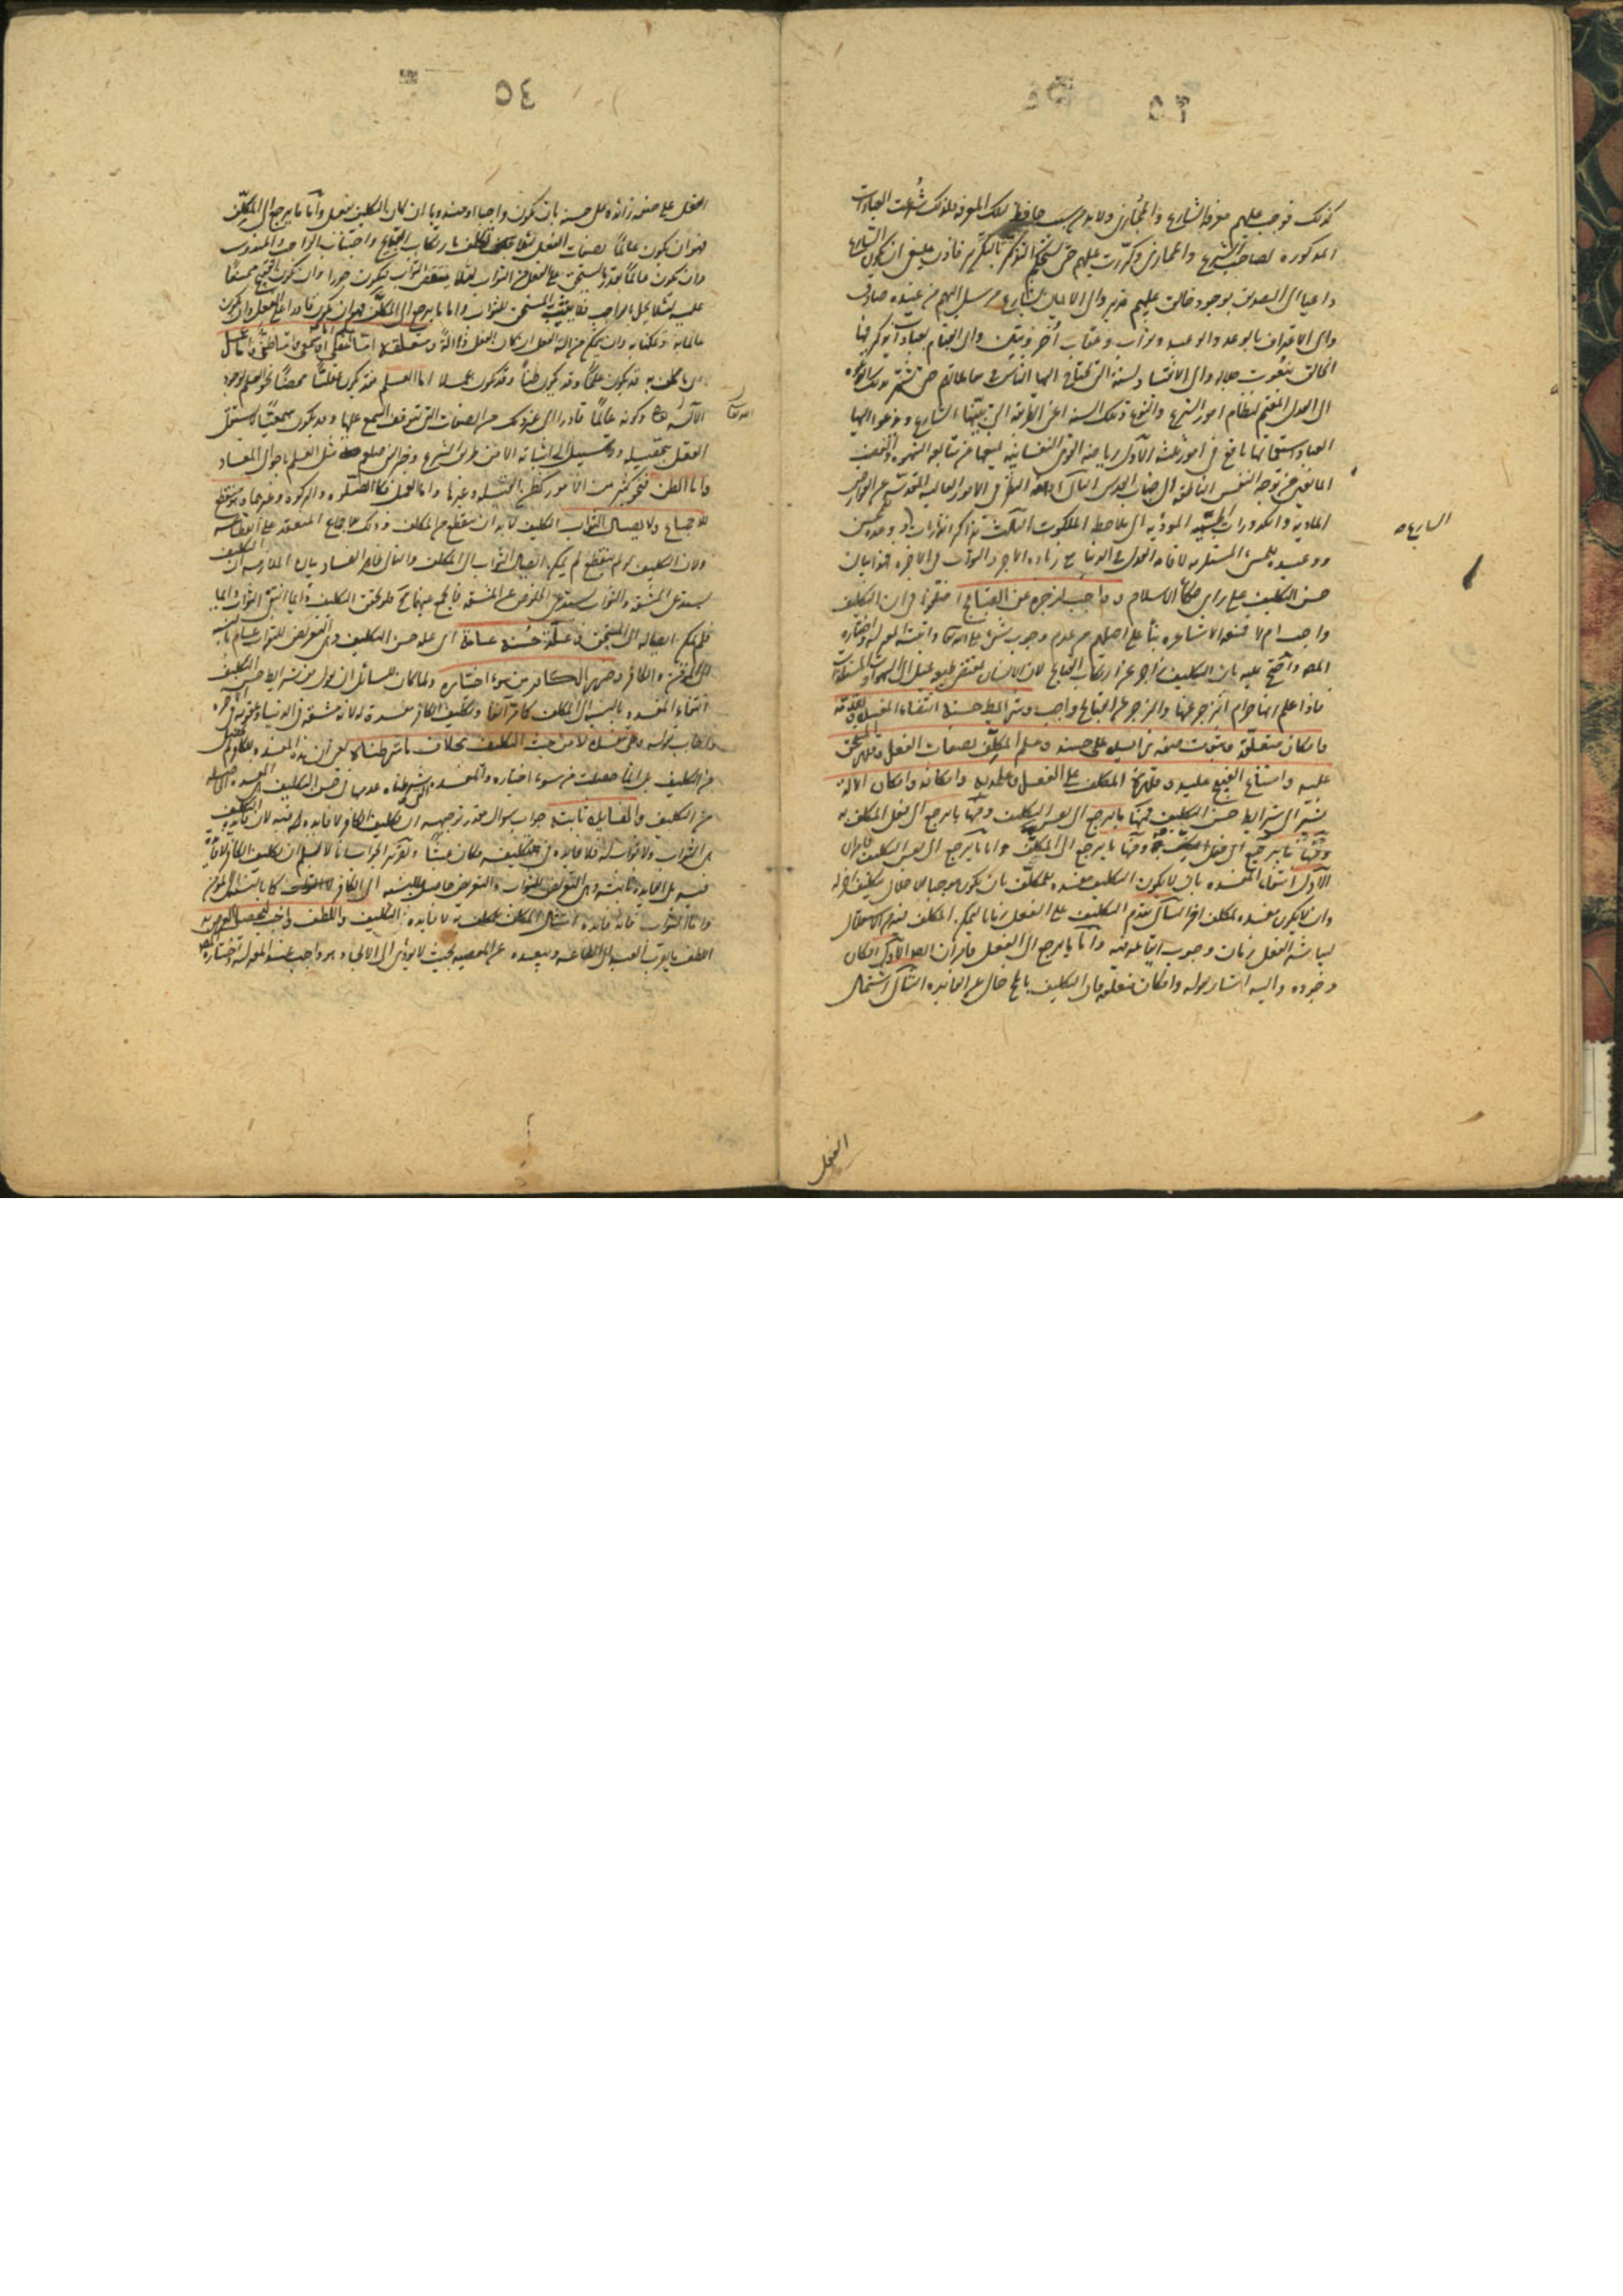 كذلك فوجب عليهم معرفة الشارع والمجازى ولا بد من سبب حافظ لتلك المعرفة فلذلك شرعت العبادات
المذكورة لصاحب الشرع والمجازى وكررت عليهم حتى يستحكم التذكر بالتكرير فاذن ينبغى ان يكون الشارع
داعيا الى التصديق بوجود خالق عليم قدير والى الايمان بشارع مرسل اليهم من عنده صادق
والى الاعتراف بالوعد والوعيد وثواب وعقاب أخرويين والى القيام بعبادات يذكر فيها
الخالق بنعوت جلاله والى الانقياد لسنة التى يحتاج اليها الناس فى معاملاتهم حتى يستمر بذلك الدعوة
الى العدل المقيم لنظام امور النوع وتلك السنة
استعمالها نافع فى امور ثلثة الاول رياضة القوى النفسانية بمنعها عن متابعة الشهوة والغضب
المانعين عن توجه النفس الناطقة الى جناب القدس الثانى ادامة النظر فى الامور العالية المقدسة عن العوارض
المادية والكدورات الحسية المؤدية الى ملاحظة الملكوت الثالث تذاكر انذارات الشارع ووعده للمحسن
ووعيده للمسىء المستلزمة لاقامة العدل فى الدنيا مع زيادة الاجر والثواب فى الاخرة فهذا بيان
حسن التكليف على راى حكماء الاسلام وواجب لزجره عن القبائح اختلفوا فى ان التكليف
واجب ام لا فمنعه الاشاعرة بناء على اصلهم من عدم وجوب شىء على الله تعالى واثبته المعتزلة واختاره
المصنف واحتج عليه بان التكليف زاجر عن ارتكاب القبائح لان الانسان بمقتضى طبعه يميل الى الشهوات والمستلذات
فاذا علم انها حرام انزجر عنها والزجر عن القبائح واجب وشرائط حسنه انتفاء المفسدة وتقدمه
وامكان متعلقه وثبوت صفة زائدة على حسنه وعلم المكلف بصفات الفعل وقدر المستحق
عليه وامتناع القبيح عليه وقدرة المكلف على الفعل وعلمه به وامكانه وامكان الآلة
يشير الى شرائط حسن التكليف فمنها ما يرجع الى نفس التكليف ومنها ما يرجع الى فعل المكلف به
ومنها ما يرجع الى فعل المكلف ومنها ما يرجع الى المكلف واما ما يرجع الى نفس التكليف فامران
الاول انتفاء المفسدة بان لا يكون التكليف مفسدة للمكلف بان يكون موجبا لاخلال بتكليف آخر له
وان لا يكون مفسدة لمكلف اخر الثانى تقدم التكليف على الفعل زمانا ليمكن المكلف
لمباشرة الفعل زمان وجوب ايقاعه فيه واما ما يرجع الى الفعل فامران احدهما امكان
وجوده واليه اشار بقوله وامكان متعلقه فان التكليف بالمحال خال عن الفائدة الثانى اشتمال
الشارع
الفعل
٥٤
الفعل على صفة زائدة على حسنه بان يكون واجبا او مندوبا ان كان التكليف بفعل واما ما يرجع الى المكلف
فهو ان يكون عالما بصفات الفعل لئلا يكلف بارتكاب القبائح واجتناب الواجب والمندوب
وان يكون عالما بقدر ما يستحق على الفعل من الثواب لئلا ينقص الثواب فيكون جورا وان يكون القبيح ممتنعا
عليه لئلا يخل بالواجب فلا يثيب المستحق للثواب واما ما يرجع الى المكلف فهو ان يكون قادرا على الفعل وان يكون
عالما به او متمكنا من العلم به وان يمكن من آلة الفعل ان كان الفعل ذا آلة ومتعلقه اما علم اما عقلى او سمعى واما ظن واما عمل
ما يكلف به قد يكون علما وقد يكون ظنا وقد يكون عملا اما العلم فقد يكون عقليا محضا نحو العلم بوجود
الاله تعالى وكونه عالما قادرا الى غير ذلك من الصفات التى يتوقف السمع عليها وقد يكون سمعيا لا يستقل
العقل بتحصيله ولا سبيل الى اثباته الا من طريق الشرع مثل العلم باحوال المعاد
واما الظن فنحو كثير من الامور كظن القبلة وغيرها واما العمل فكالصلوة والزكوة وغيرهما وهو منقطع
للاجماع ولايصال الثواب التكليف لا بد ان ينقطع عن المكلف وذلك للاجماع المنعقد على انقطاعه
ولان التكليف لو لم ينقطع لم يمكن ايصال الثواب الى المكلف والتالى ظاهر الفساد بيان الملازمة ان التكليف
يستدعى المشقة والثواب يستدعى الخلوص عن المشقة فالجمع بينهما محال فلو تحقق التكليف دائما انتفى الثواب دائما
فلم يمكن ايصاله الى المستحق وعلة حسنه عامة اى علة حسن التكليف وهى التعريض للثواب عام بالنسبة
الى المؤمن والكافر وضرر الكافر من سوء اختياره ولما كان للسائل ان يقول من شرائط حسن التكليف
انتفاء المفسدة بالنسبة الى المكلف كما مر آنفا وتكليف الكافر مفسدة له لانه مشقة فى الدنيا وعقوبة فى الآخرة
فاجاب بقوله وهو مفسدة لا من حيث التكليف بخلاف ما شرطناه يعنى ان هذه المفسدة للكافر لم تحصل
من التكليف بل انما حصلت من سوء اختياره والمفسدة التى شرطناه عدمها فى حسن التكليف المفسدة الحاصلة
من التكليف والفائدة ثابتة جواب سؤال مقدر توجيهه ان تكليف الكافر لا فائدة فيه لان فائدة التكليف
هى الثواب ولا ثواب له فلا فائدة فى تكليفه فكان عبثا وتقرير الجواب انا لا نسلم ان تكليف الكافر لا فائدة
فيه بل الفائدة ثابتة وهى التعريض للثواب والتعريض حاصل بالنسبة الى الكافر كما بالنسبة الى المؤمن
واما الثواب فانه فائدة امتثال المكلف بما كلف به لا فائدة التكليف واللطف واجب ليحصل الغرض به
اللطف ما يقرب العبد الى الطاعة ويبعده عن المعصية بحيث لا يؤدى الى الالجاء وهو واجب عند المعتزلة واختاره المصنف